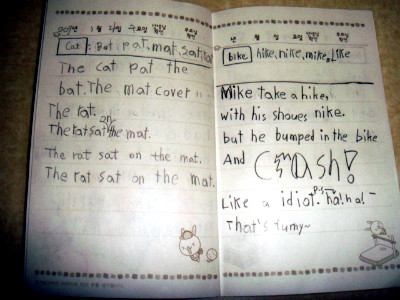 년 1월 일 요일
Cat : Bat, pat, mat, sat, rat
The cat pat the
bat. The mat cover
The rat.
The rat sat on the mat.
The rat sat on the mat.
The rat sat on the mat.
년 월 일 요일
bike hike, nike, mike, Like
Mike take a hike,
with his shoues nike.
but he bumped in the bike
And Crash!
Like a idiot. P.S ha! ha! ~
That's funny~